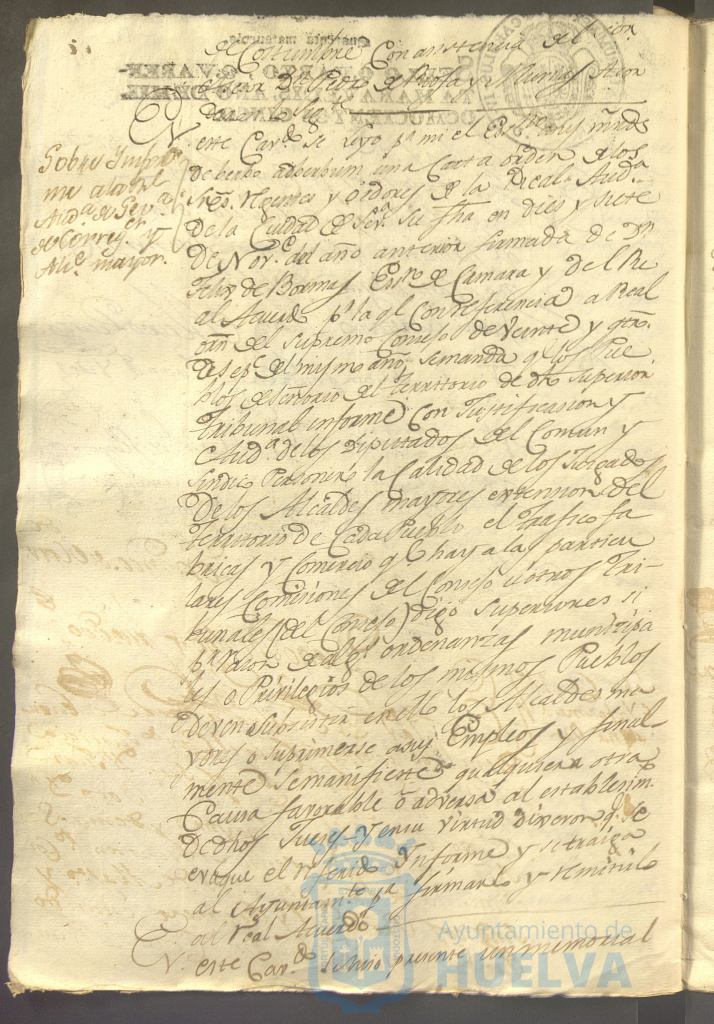 de Costumbre Con asistencia del
Señor Dn. Pedro de la Rosa y
daron lo sigte.
En
este Cavdo. se leyo pr. mi el Essno.
de berbo adberbum una Carta orden de los
Sres. Regentes y oidores de la Real Auda.
de la Ciudad de Seva. su fha en diez y siete
de Nove. del año anterior firmada de Dn.
Felix de Bormas Essno. de Camara y del Re
al Acuerdo pr. la ql. Con referencia a Real
orn. del supremo Consejo de Veinte y qtro.
de Sepe. del mismo año, se manda q. los Pue
blos de señorio del territorio de dho superior
tribunal informe Con Justificasion y
Auda. de los Diputados del Comun y
sindico Personero la Calidad de los Juzgados
De los Alcaldes mayores extension del
territorio de Cada Pueblo el trafico fa
bricas y Comercio q. hay a las particu
lares Comisiones del Consejo u otros Tri-
bunales (del Consejo) digo superiores si
pr. razon de algs. ordenanzas munizipa
les o Privilegios de los mismos Pueblos
deven subsistir en ello los Alcaldes ma
yores o suprimirse a sus Empleos y final
mente se manifieste qualquiera otra
Causa favorable o adversa al establesimto.
de dhos Jueses y en su virtud dixeron q. se
evaque el referido Informe y se traiga
al Ayuntamto. pa. firmarlo y remitirlo
al Real Acuerdo
En
este Cavdo. se hizo presente un memorial
Sobre Infor
me a la Rl.
Auda. de Seva.
de Corregr. y
Alce. mayor.
Ayuntamiento de
HUELVA